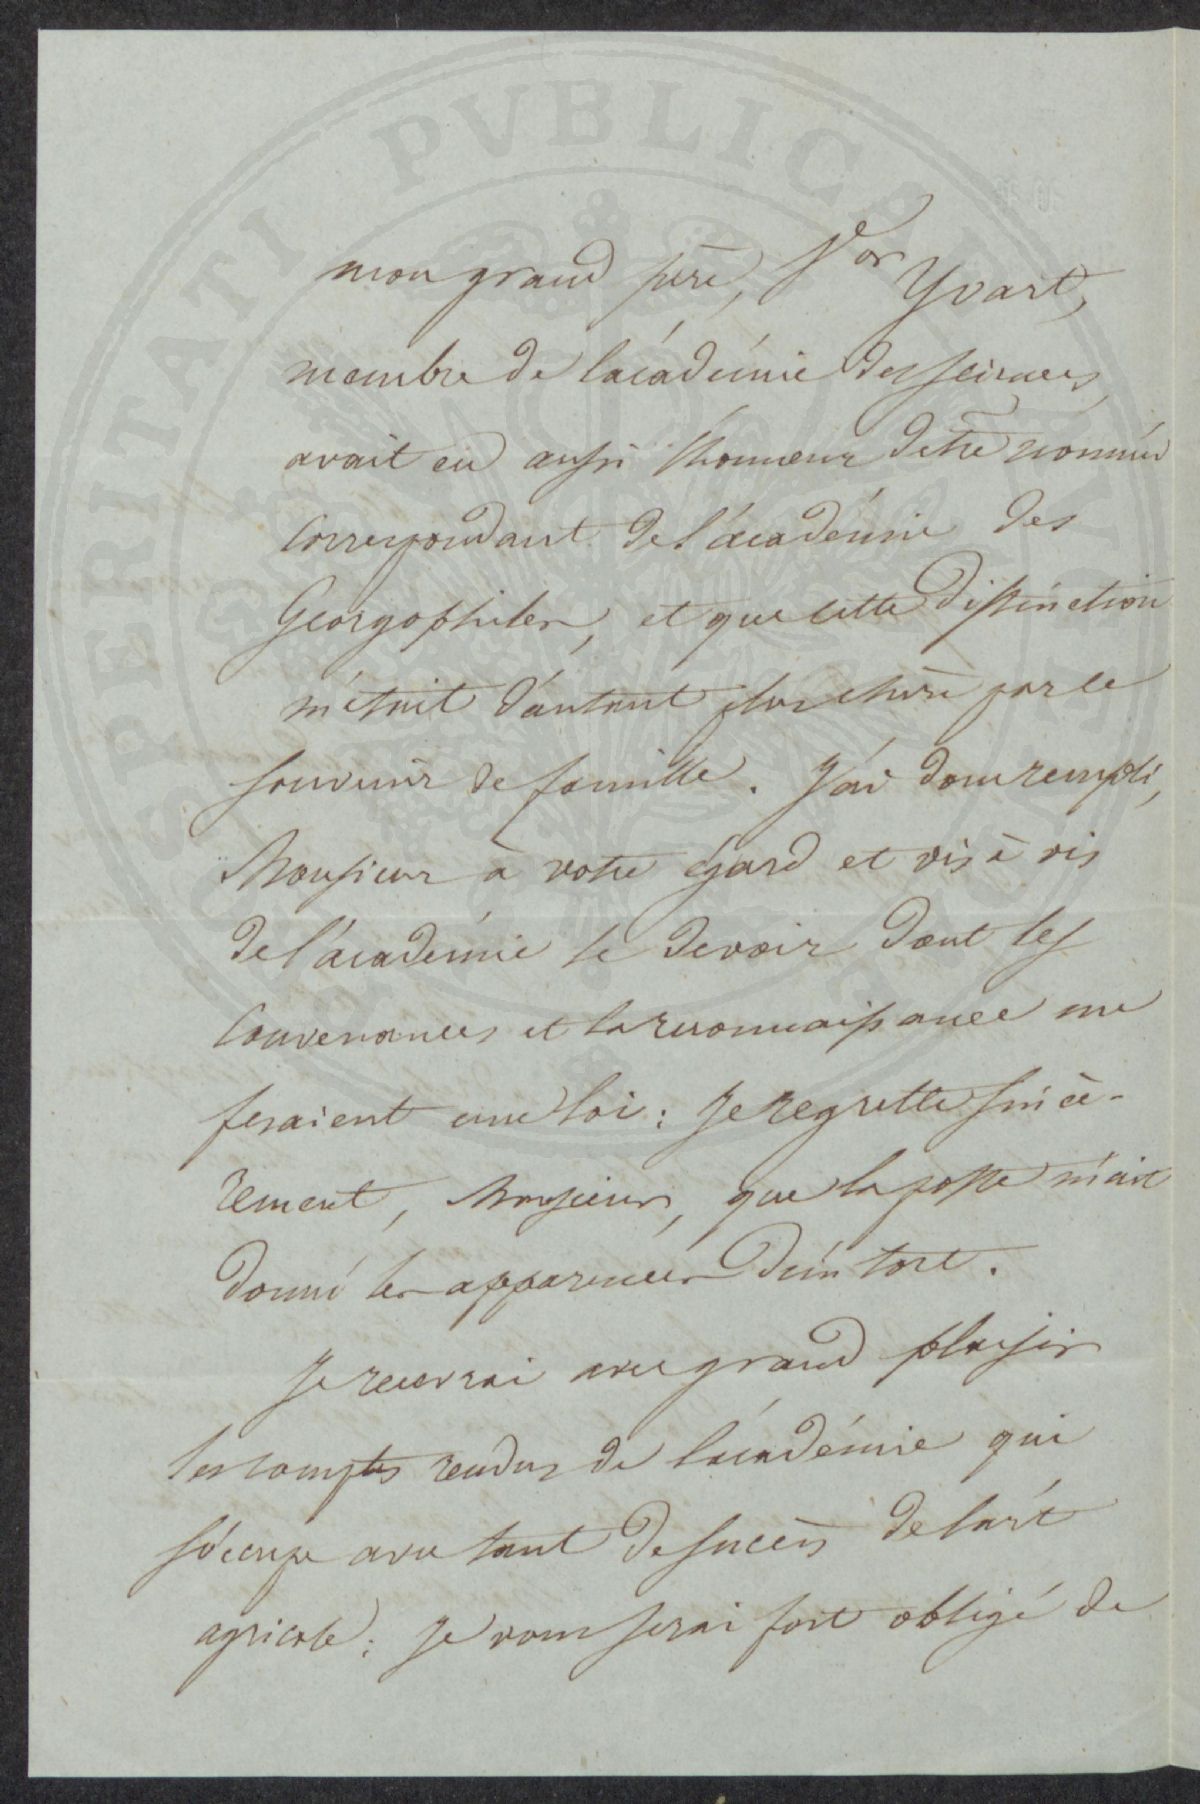 mon grand père, Yvart,
membre de l'académie des sciences,
avait eu aussi l'honneur d'être nommé
correspondant de l'académie des
Georgophiles, et que cette distinction
m'était d'autant plus chère par ce
souvenir de famille. J'ai donc rempli,
Monsieur à votre égard et vis à vis
de l'académie le devoir dont les
convenances et la reconnaissance me
feraient une loi : Je regrette sincè-
rement, Monsieur, que la poste m'ait
donné les apparences d'un tort.
Je recevrai avec grand plaisir
les comptes rendus de l'académie qui
s'occupe avec tant de succès de l'art
agricole : Je vous serai fort obligé de
PUBLICAE
PROSPERITATI